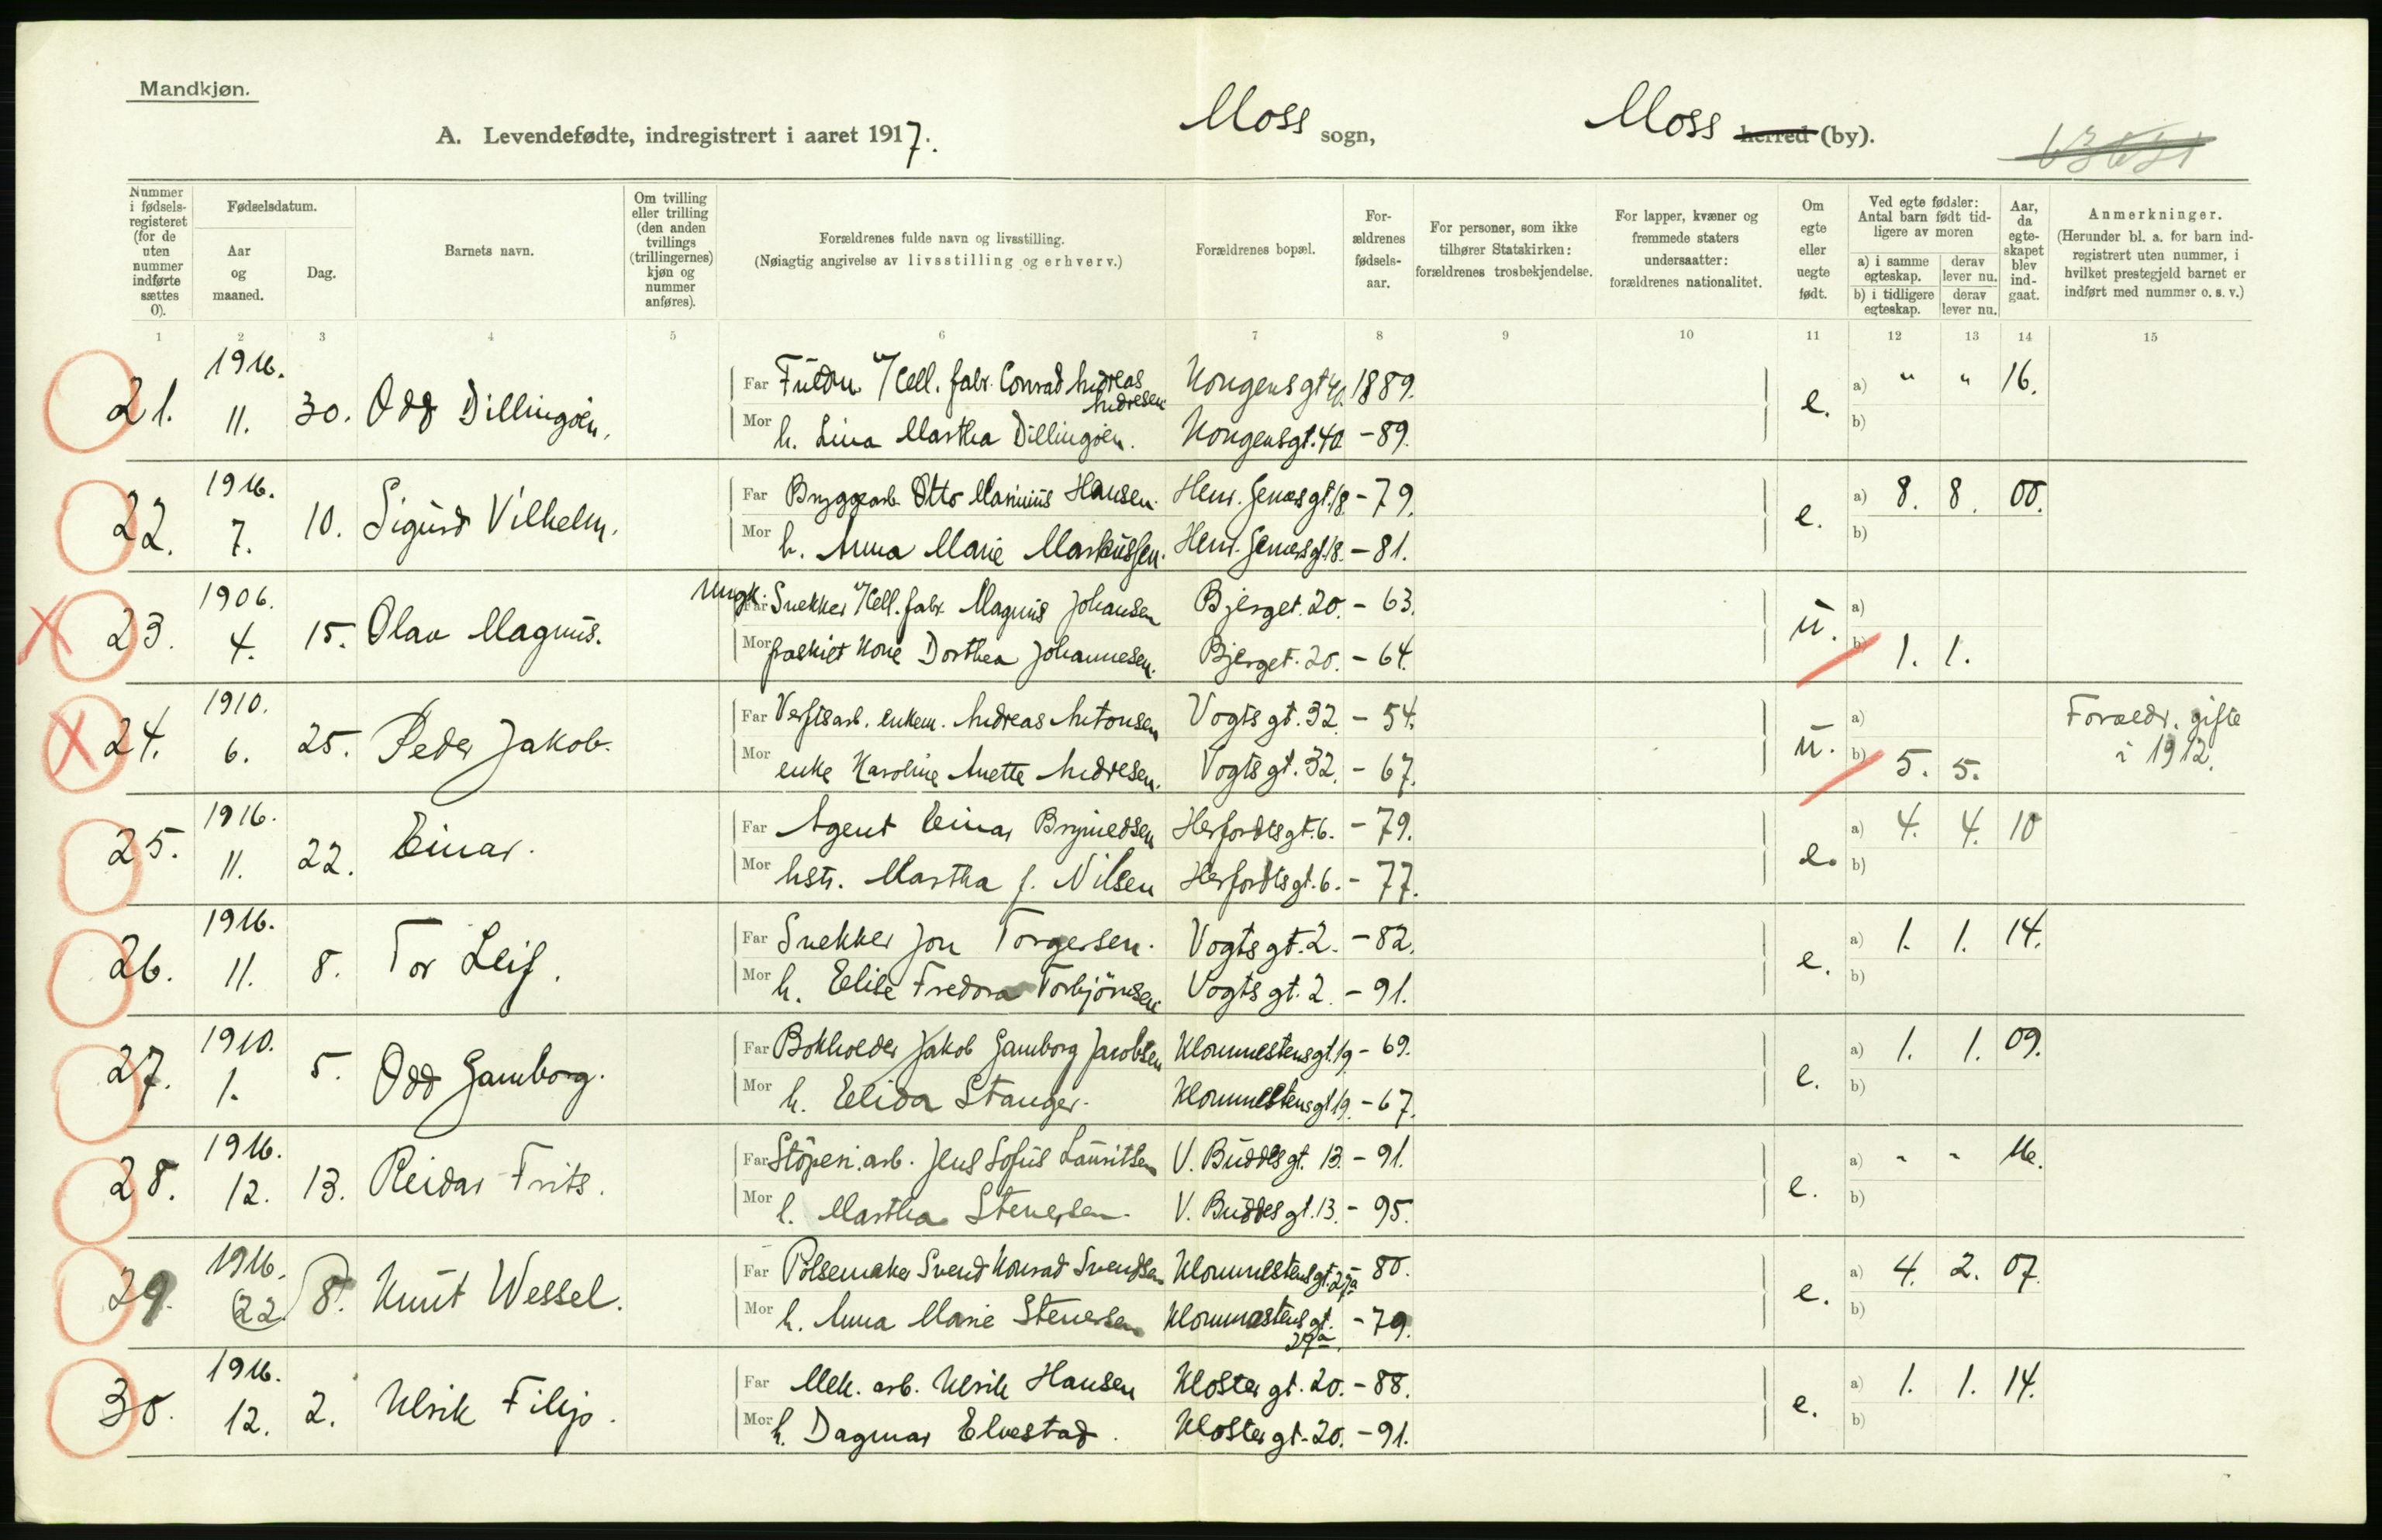 Mandkjøn.
A. Levendefødte, indregistrert i aaret 1917.
Moss sogn,
Moss herred (by).
Nummer i fødsels-registeret (for de uten nummer indførte sættes 0).
Fødselsdatum.
Aar og maaned.
Dag.
Barnets navn.
Om tvilling eller trilling (den anden tvillings (trillingernes) kjøn og nummer anføres).
Forældrenes fulde navn og livsstilling.
(Nøiagtig angivelse av livsstilling og erhverv.)
Forældrenes bopæl.
For-ældrenes fødsels-aar.
For personer, som ikke tilhører Statskirken: forældrenes trosbekjendelse.
For lapper, kvæner og fremmede staters undersaatter: forældrenes nationalitet.
Om egte eller uegte født.
Ved egte fødsler: Antal barn født tid-ligere av moren
a) i samme egteskap.
derav lever nu.
b) i tidligere egteskap.
derav lever nu.
Aar, da egte-skapet blev ind-gaat.
Anmerkninger.
(Herunder bl. a. for barn ind-registrert uten nummer, i hvilket prestegjeld barnet er indført med nummer o. s. v.)
1 2 3 4 5 6 7 8 9 10 11 12 13 14 15
21. 1916. 11. 30. Odd Dillingøen.
Far Cell. fabr. Conrad Andreas Andresen Kongensgt 40. 1889. e. a) " " 16.
Mor h. Lina Martha Dillingøen. Kongensgt. 40 - 89. b)
22. 1916. 7. 10. Sigurd Vilhelm.
Far Bryggearb. Otto Marinius Hansen. Henr. Gernersgt. 18 - 79. e. a) 8. 8. 00.
Mor h. Anna Marie Markussen. Henr. Gernersgt. 18. - 81. b)
23. 1906. 4. 15. Olav Magnus.
Ungk. Far Snekker v/Cell. fabr. Magnus Johansen Bjerget. 20. - 63. u. a)
Mor fraskilt Kone Dorthea Johannesen. Bjerget. 20. - 64. b) 1. 1.
24. 1910. 6. 25. Peder Jakob.
Far Verftsarb. enkem. Andreas Antonsen Vogts gt. 32. - 54. u. a) Forældr. gifte
Mor enke Karoline Anette Andresen. Vogts gt. 32. - 67. b) 5. 5. i 1912.
25. 1916. 11. 22. Einar.
Far Agent Einar Brynedsen Herfordtsgt. 6. - 79. e. a) 4. 4. 10
Mor hstr. Martha J. Nilsen Herfordtsgt. 6. - 77. b)
26. 1916. 11. 8. Tor Leif.
Far Snekker Jon Torgersen. Vogts gt. 2. - 82. e. a) 1. 1. 14.
Mor h. Elise Fredora Torbjörnsen Vogts gt. 2. - 91. b)
27. 1910. 1. 5. Odd Gamborg.
Far Bokholder Jakob Gamborg Jacobsen Klommestensgt. 19 - 69. e. a) 1. 1. 09.
Mor h. Elida Stanger. Klommestensgt 19. - 67. b)
28. 1916. 12. 13. Reidar Frits.
Far Stöperi. arb. Jens Sofus Lauritsen V. Buddesgt. 13. - 91. e. a) " " 16.
Mor h. Martha Stenersen. V. Buddesgt. 13. - 95. b)
29. 1916. 22 8. Knut Wessel.
Far Pölsemaker Svend Konrad Svendsen Klommestensgt. 27a - 80. e. a) 4. 2. 07.
Mor h. Anna Marie Stenersen Klommestensgt. 27a. - 79. b)
30. 1916. 12. 2. Ulrik Filip.
Far Mek. arb. Ulrik Hansen Kloster gt. 20. - 88. e. a) 1. 1. 14.
Mor h. Dagmar Elvestad. Kloster gt. 20. - 91. b)